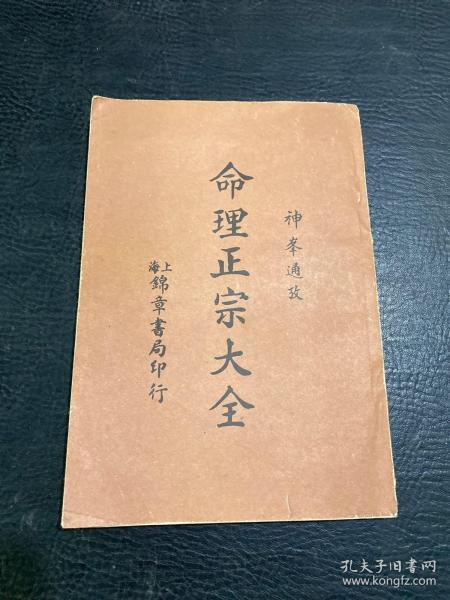 神峯通攷
命理正宗大全
上海錦章書局印行
孔夫子旧书网
www.kongfz.com